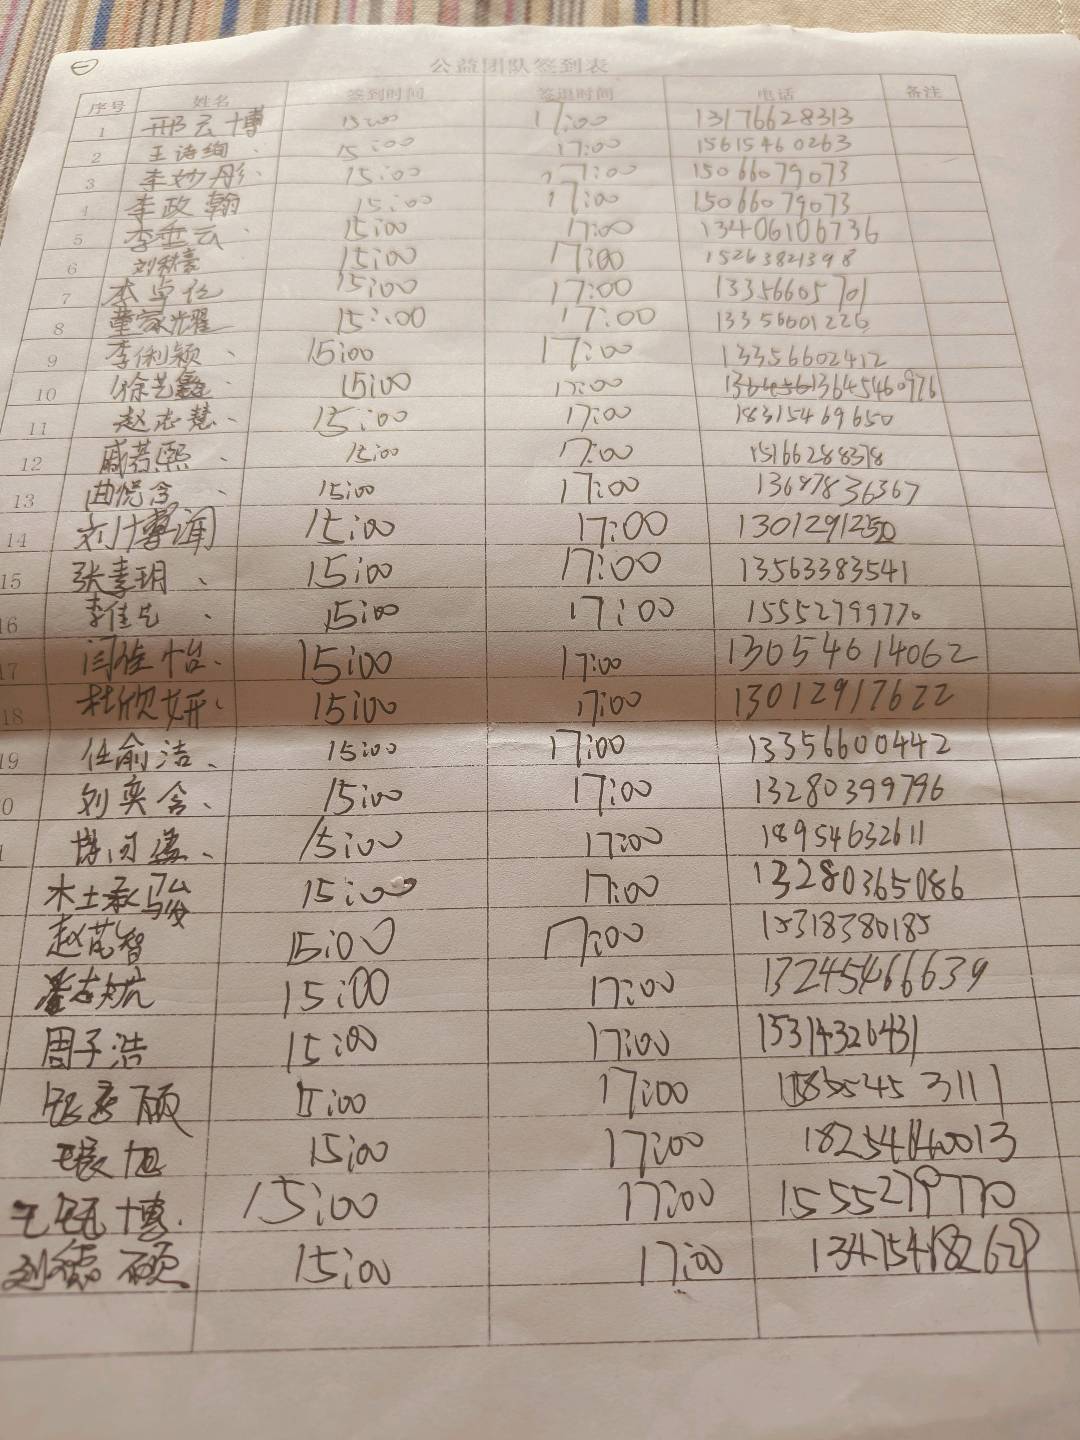 一
公益团队签到表
序号 姓名 签到时间 签退时间 电话 备注
1 邢云博 15:00 17:00 13176628313
2 王诗绚 15:00 17:00 15615460263
3 李妙彤 15:00 17:00 15066079073
4 李政翰 15:00 17:00 15066079073
5 李垂云 15:00 17:00 13406106736
6 15:00 17:00 15263821398
7 李卓伦 15:00 17:00 13356605701
8 董家耀 15:00 17:00 13356601226
9 李俐颖 15:00 17:00 13356602412
10 徐艺鑫 15:00 17:00 13645460976
11 赵志慧 15:00 17:00 18315469650
12 戚若熙 15:00 17:00 15166288378
13 曲悦含 15:00 17:00 13687836367
14 刘博闻 15:00 17:00
15 张素玥 15:00 17:00 13563383541
16 李佳 15:00 17:00 15552799770
17 闫佳怡 15:00 17:00 13054614062
18 杜欣妍 15:00 17:00 13012917622
19 任俞洁 15:00 17:00 13356600442
0 刘奕含 15:00 17:00 13280399796
15:00 17:00 18954632611
杜承骏 15:00 17:00 13280365086
赵苑智 15:00 17:00 15318380185
志航 15:00 17:00 13245466639
周子浩 15:00 17:00 15314326431
15:00 17:00
旭 15:00 17:00
博 15:00 17:00 15552799770
刘德硕 15:00 17:00 13475418269